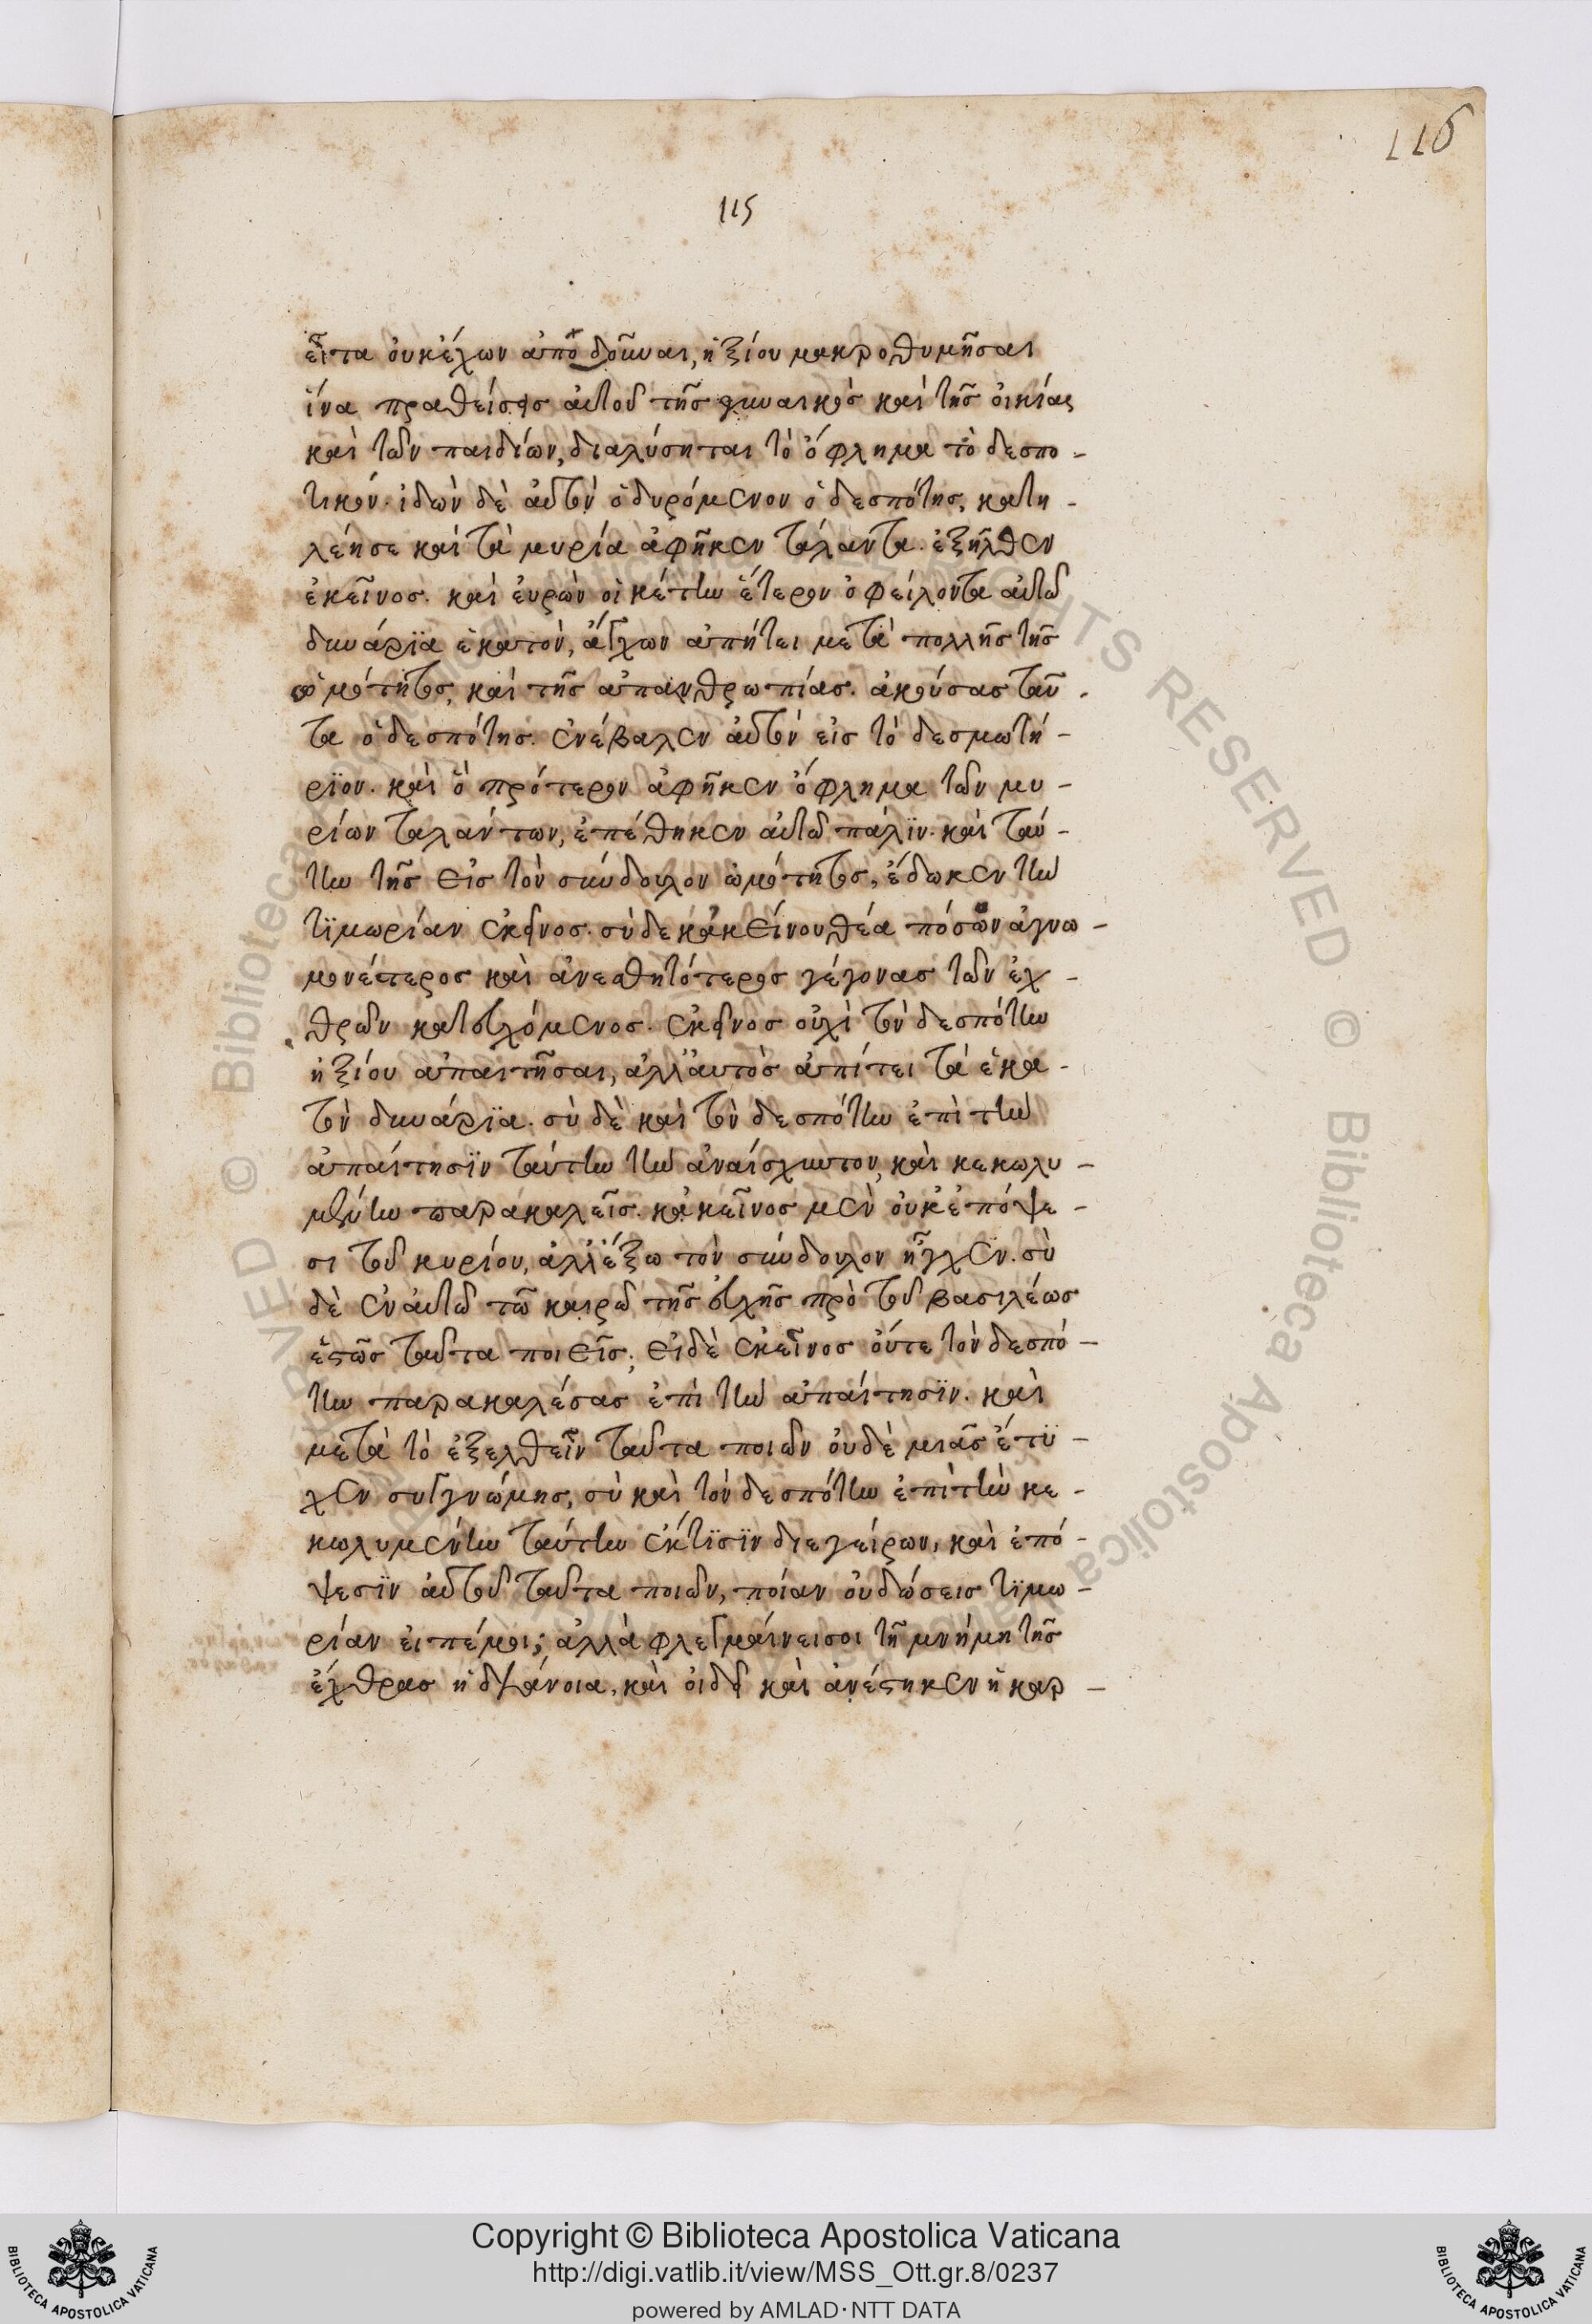 116
115
εἶτα οὐκ ἔχων ἀποδοῦναι, ἠξίου μακροθυμῆσαι
ἵνα πραθείσης αὐτοῦ τῆς γυναικὸς καὶ τῆς οἰκίας
καὶ τῶν παιδίων, διαλύσηται τὸ ὄφλημα τὸ δεσπο-
τικόν. ἰδὼν δὲ αὐτὸν ὀδυρόμενον ὁ δεσπότης, κατη-
λέησε καὶ τὰ μυρία ἀφῆκεν τάλαντα. ἐξῆλθεν
ἐκεῖνος. καὶ εὑρὼν οἰκέτην ἕτερον ὀφείλοντα αὐτῶ
δηνάρϊα ἑκατὸν, ἄγχων ἀπήτει μετὰ πολλῆς τῆς
ὠμότητος, καὶ τῆς ἀπανθρωπίας. ἀκούσας ταῦ-
τα ὁ δεσπότης. ἐνέβαλεν αὐτὸν εἰς τὸ δεσμωτή-
ρϊον. καὶ ὃ πρότερον ἀφῆκεν ὄφλημα τῶν μυ-
ρίων ταλάντων, ἐπέθηκεν αὐτῶ πάλϊν. καὶ ταύ-
την τῆς εἰς τὸν σύνδουλον ὠμότητος, ἔδωκεν τὴν
τϊμωρίαν ἐκεῖνος. σὺ δὲ κἀκείνου θέα πόσων ἀγνω-
μονέστερος καὶ ἀνεσθητότερος γέγονας τῶν ἐχ-
θρῶν κατευχόμενος. ἐκεῖνος οὐχὶ τὸν δεσπότην
ἠξίου ἀπαιτῆσαι, ἀλλ' αὐτὸς ἀπίτει τὰ ἑκα-
τὸν δηνάρϊα. σὺ δὲ καὶ τὸν δεσπότην ἐπὶ τὴν
ἀπαίτησϊν ταύτην τὴν ἀναίσχυντον, καὶ κεκωλυ-
μένην παρακαλεῖς. κἀκεῖνος μὲν οὐκ ἐπόψε-
σι τοῦ κυρίου, ἀλλ' ἔξω τὸν σύνδουλον ἦγχεν. σὺ
δὲ ἐν αὐτῶ τῶ καιρῶ τῆς εὐχῆς πρὸ τοῦ βασιλέως
ἑστὼς ταῦτα ποιεῖς. εἰ δὲ ἐκεῖνος οὔτε τὸν δεσπό-
την παρακαλέσας ἐπὶ τὴν ἀπαίτησϊν. καὶ
μετὰ τὸ ἐξελθεῖν ταῦτα ποιῶν οὐδὲ μιᾶς ἔτϋ-
χεν συγγνώμης, σὺ καὶ τὸν δεσπότην ἐπὶ τὴν κε-
κωλυμένην ταύτην ἔκτϊσϊν διεγείρων, καὶ ἐπό-
ψεσϊν αὐτοῦ ταῦτα ποιῶν, ποίαν οὐ δώσεις τϊμω-
ρίαν εἰπέ μοι; ἀλλὰ φλεγμαίνει σοι τῆ μνήμη τῆς
ἔχθρας ἡ διάνοια, καὶ οἰδεῖ καὶ ἀνέστηκεν ἡ καρ-
Copyright © Biblioteca Apostolica Vaticana
http://digi.vatlib.it/view/MSS_Ott.gr.8/0237
powered by AMLAD·NTT DATA